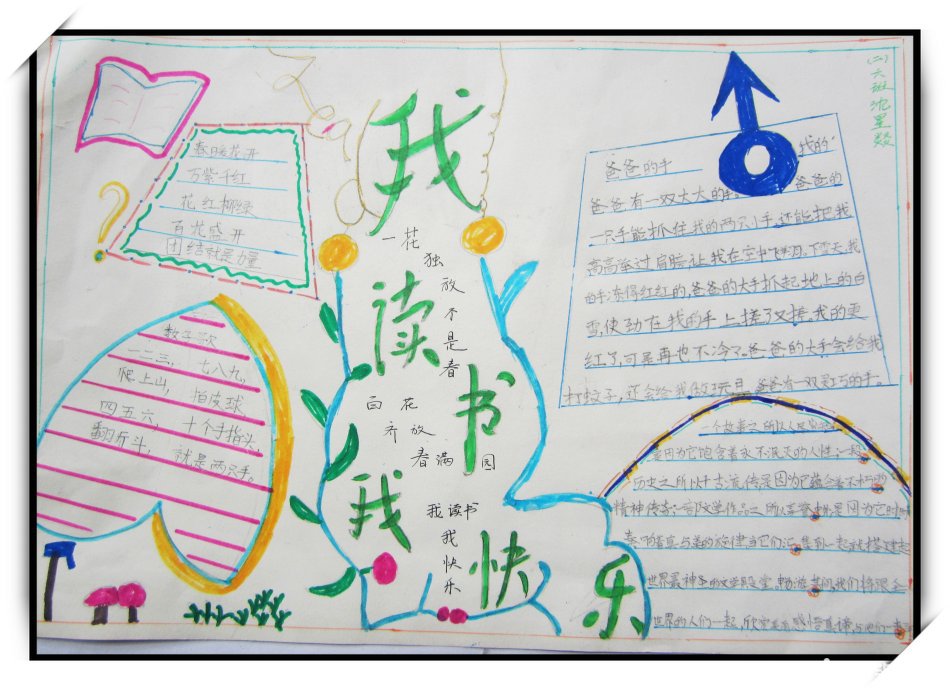 (二)六班
春暖花开
万紫千红
花红柳绿
百花盛开
团结就是力量
我读书我快乐
一花独放不是春
百花齐放春满园
我读书我快乐
数子歌
一二三，七八九，
爬上山，拍皮球，
四五六，十个手指头，
翻斤斗，就是两只手。
爸爸的手 我的
爸爸有一双大大的手 爸爸的
一只手能抓住我的两只小手，还能把我
高高举过肩膀让我在空中飞翔。下雪天，我
的手冻得红红的，爸爸的大手抓起地上的白
雪，使劲在我的手上搓了又搓，我的更
红了，可是再也不冷了。爸爸的大手会给我
打蚊子，还会给我做 爸爸有一双灵巧的手。
一个故事之所以
是因为它饱含着永不泯灭的人性；一段
历史之所以千古流传是因为它蕴含着不朽的
精神传奇；一部文学作品之所以 是因为它时
奏响着真与美的旋律当它们汇集到一起就搭建起
世界最神圣的文学殿堂，畅游其间我们将跟全
世界的人们一起，欣赏 感悟真情，与他们一